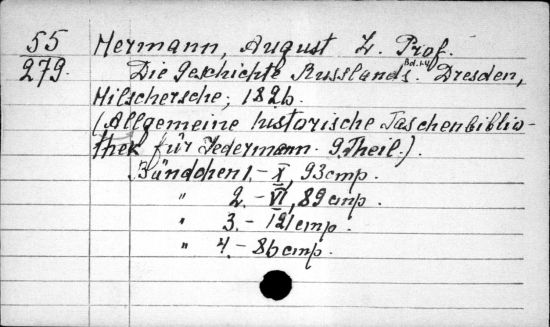 55 Hermann, August L. Prof.
279. Die Geschichte Russlands. Bd. 1-4 Dresden,
Hilschersche, 1826.
(Allgemeine historische Taschenbiblio-
thek für Jedermann. 9. Theil.).
Bändchen 1. - X, 93 стр.
" 2. - VI, 89 стр.
" 3. - 121 стр.
" 4. - 86 стр.